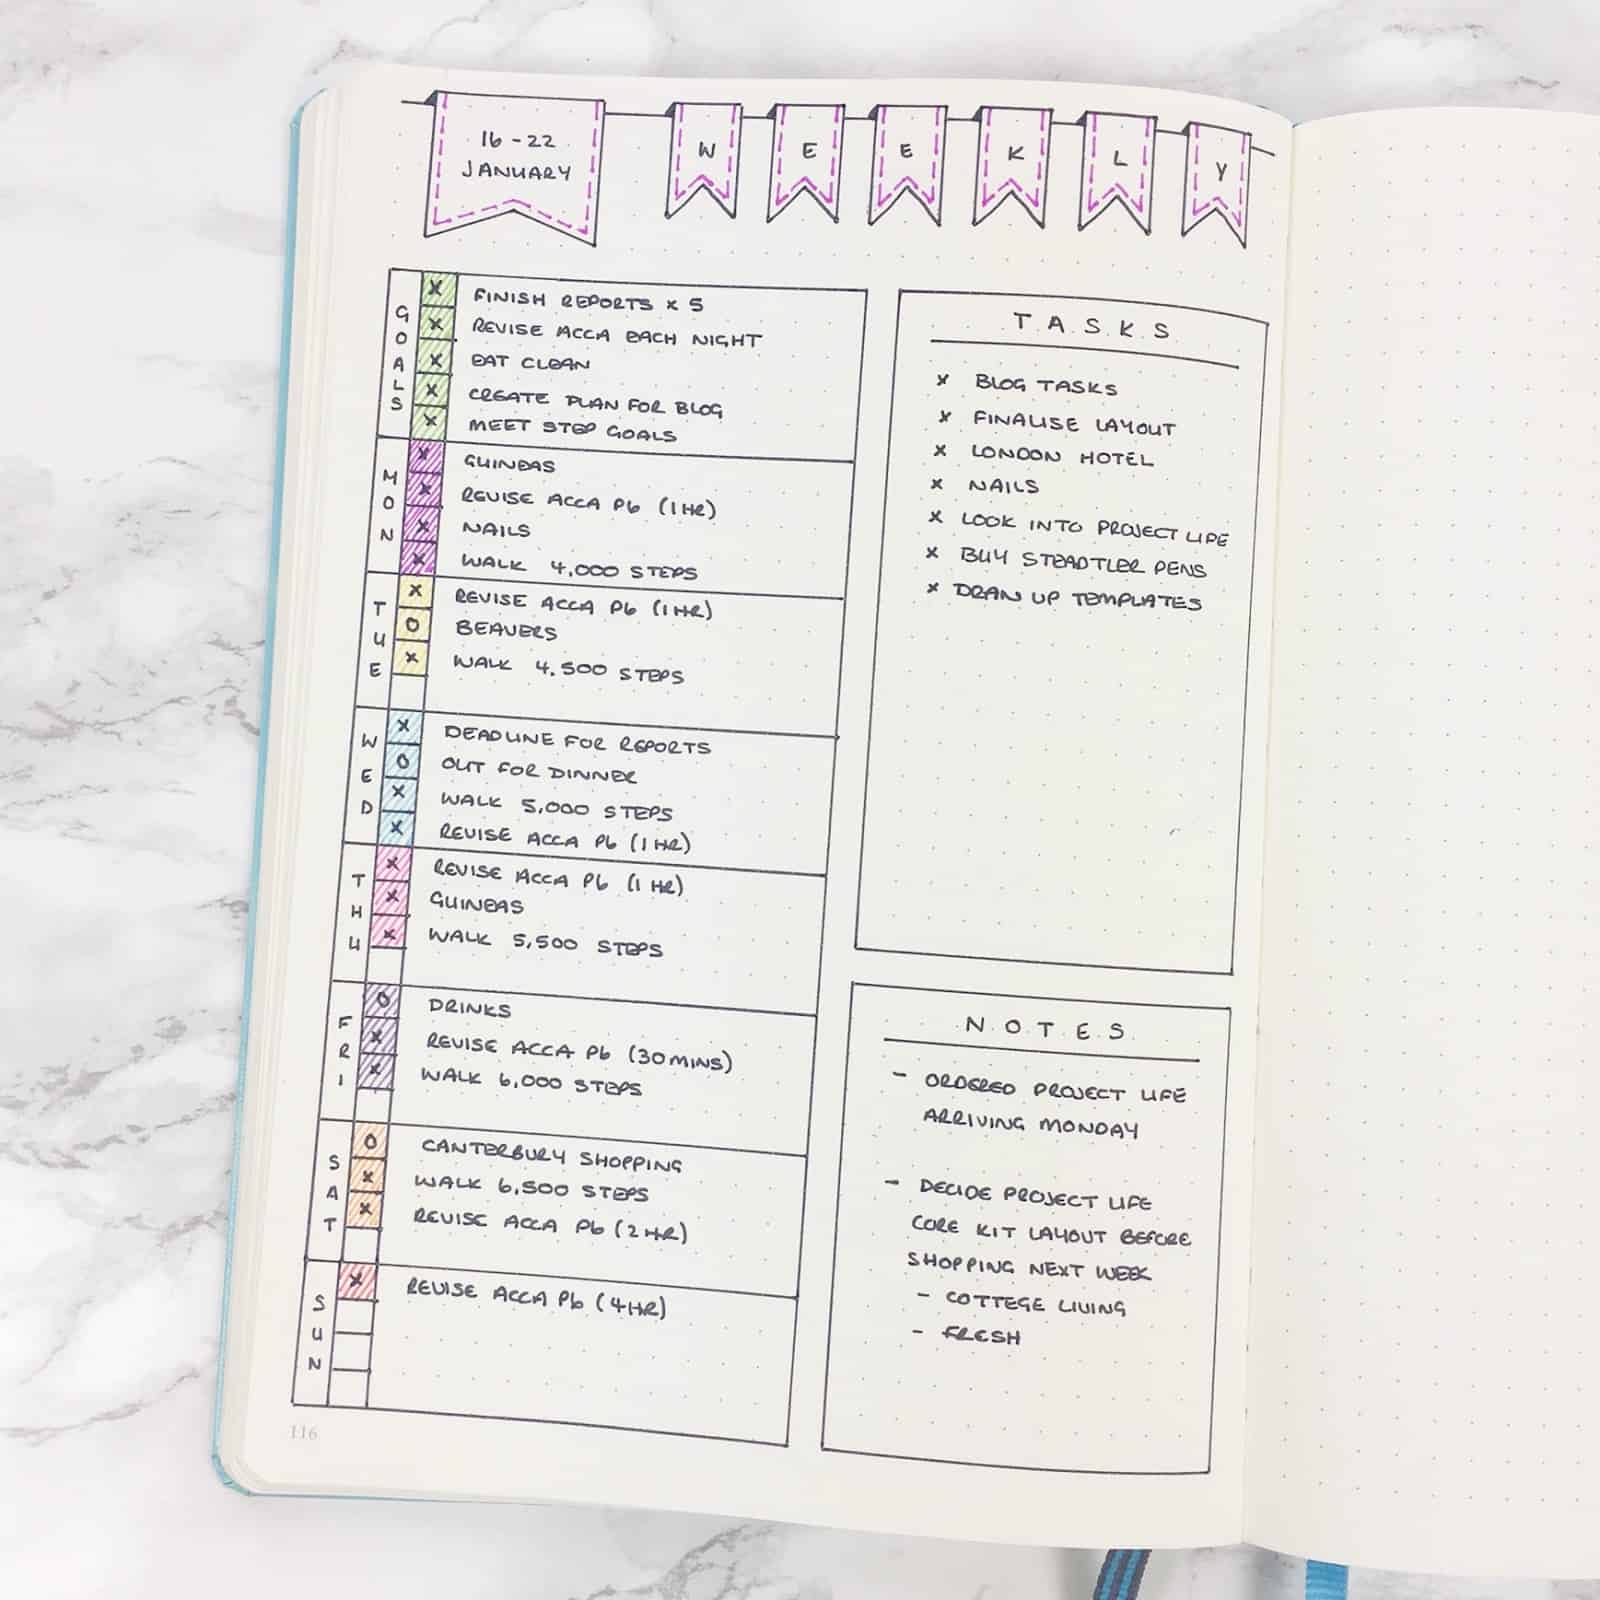 16-22
JANUARY
W E E K L Y
GOALS
X FINISH REPORTS x 5
X REVISE ACCA EACH NIGHT
X EAT CLEAN
X CREATE PLAN FOR BLOG
X MEET STEP GOALS
MON
X GUINEAS
X REVISE ACCA P6 (1HR)
X NAILS
X WALK 4,000 STEPS
TUE
X REVISE ACCA P6 (1HR)
O BEAVERS
X WALK 4,500 STEPS
WED
X DEADLINE FOR REPORTS
O OUT FOR DINNER
X WALK 5,000 STEPS
X REVISE ACCA P6 (1HR)
THU
X REVISE ACCA P6 (1HR)
X GUINEAS
X WALK 5,500 STEPS
FRI
O DRINKS
X REVISE ACCA P6 (30MINS)
X WALK 6,000 STEPS
SAT
O CANTERBURY SHOPPING
X WALK 6,500 STEPS
X REVISE ACCA P6 (2HR)
SUN
X REVISE ACCA P6 (4HR)
TASKS
X BLOG TASKS
X FINALISE LAYOUT
X LONDON HOTEL
X NAILS
X LOOK INTO PROJECT LIFE
X BUY STEADTLER PENS
X DRAW UP TEMPLATES
NOTES
- ORDERED PROJECT LIFE
ARRIVING MONDAY
- DECIDE PROJECT LIFE
CORE KIT LAYOUT BEFORE
SHOPPING NEXT WEEK
- COTTEGE LIVING
- FRESH
116